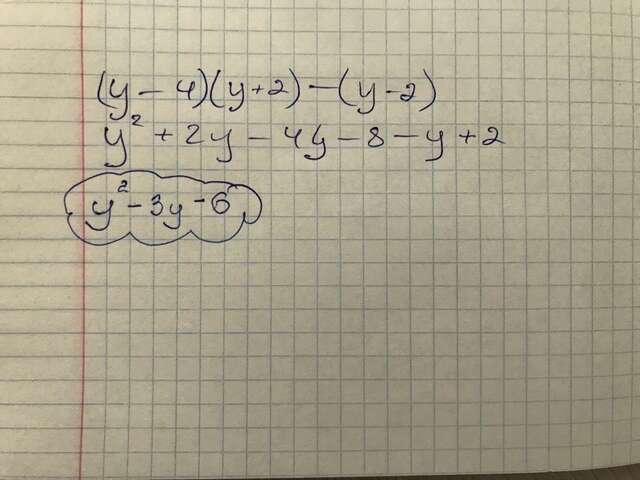 (y - 4)(y + 2) - (y - 2)
y² + 2y - 4y - 8 - y + 2
y² - 3y - 6